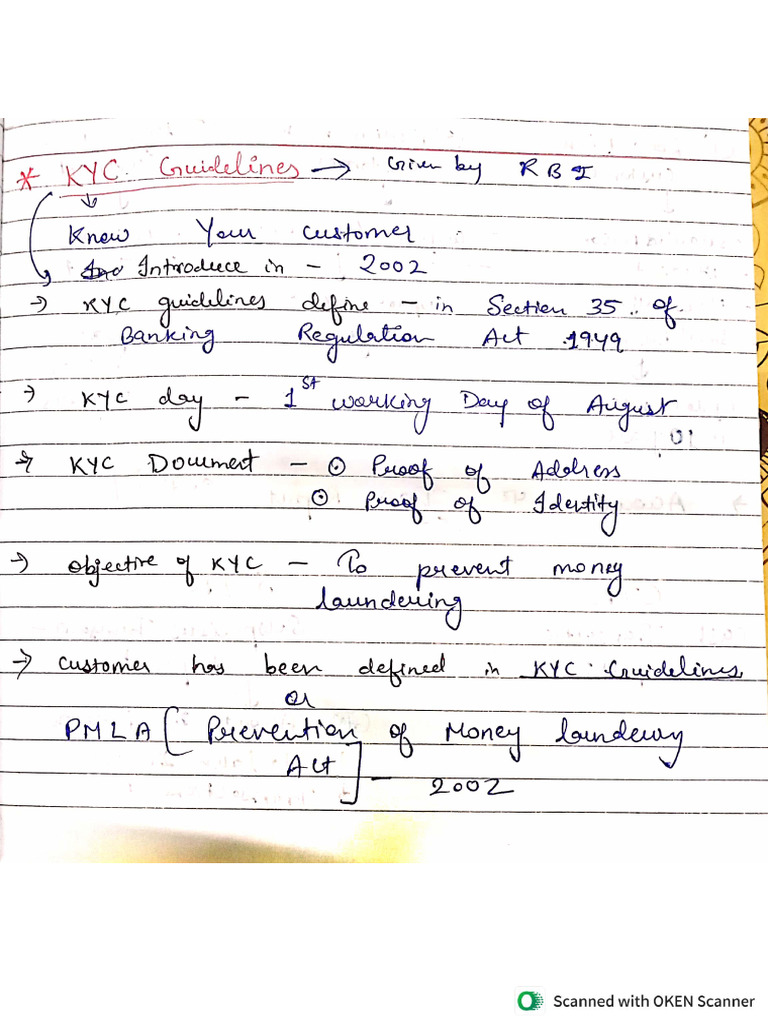 * KYC Guidelines → Given by RBI
Know Your Customer
Introduce in - 2002
→ KYC guidelines define - in Section 35 of
Banking Regulation Act 1949
→ KYC day - 1st working Day of August
→ KYC Document - ⊙ Proof of Address
⊙ Proof of Identity
→ Objective of KYC - To prevent money
laundering
→ Customer has been defined in KYC Guidelines
or
PMLA [Prevention of Money
Act] - 2002
Scanned with OKEN Scanner